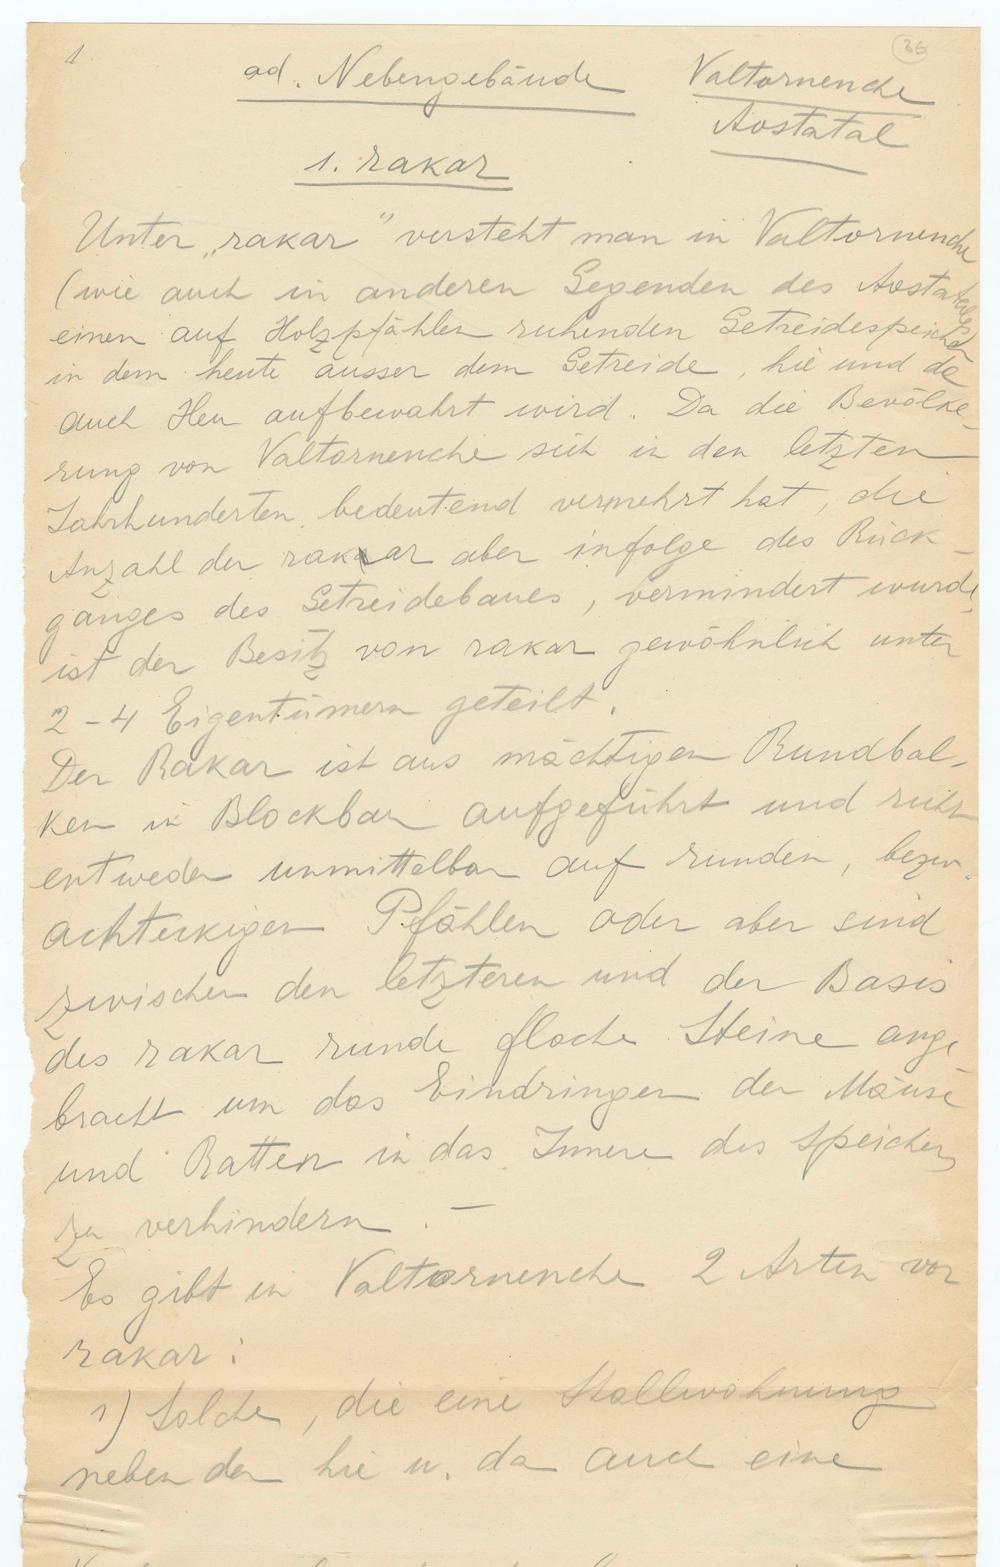 1
36
ad. Nebengebäude Valtornenche
Aostatal
1. rakar
Unter „rakar” versteht man in Valtornenche
(wie auch in anderen Gegenden des Aostatales)
einen auf Holzpfählen ruhenden Getreidespeicher
in dem heute ausser dem Getreide, hie und da
auch Heu aufbewahrt wird. Da die Bevölke-
rung von Valtornenche sich in den letzten
Jahrhunderten bedeutend vermehrt hat, die
Anzahl der rakar aber infolge des Rück-
ganges des Getreidebaues, vermindert wurde,
ist der Besitz von rakar gewöhnlich unter
2-4 Eigentümern geteilt.
Der Rakar ist aus mächtigen Rundbal-
ken in Blockbau aufgeführt und ruht
entweder unmittelbar auf runden, bezw.
achteckigen Pfählen oder aber sind
zwischen den letzteren und der Basis
des rakar runde flache Steine ange
bracht um das Eindringen der Mäuse
und Ratten in das Innere des Speichers
zu verhindern. —
Es gibt in Valtornenche 2 Arten von
rakar:
1) Solche, die eine Stallwohnung
neben der hie u. da auch eine